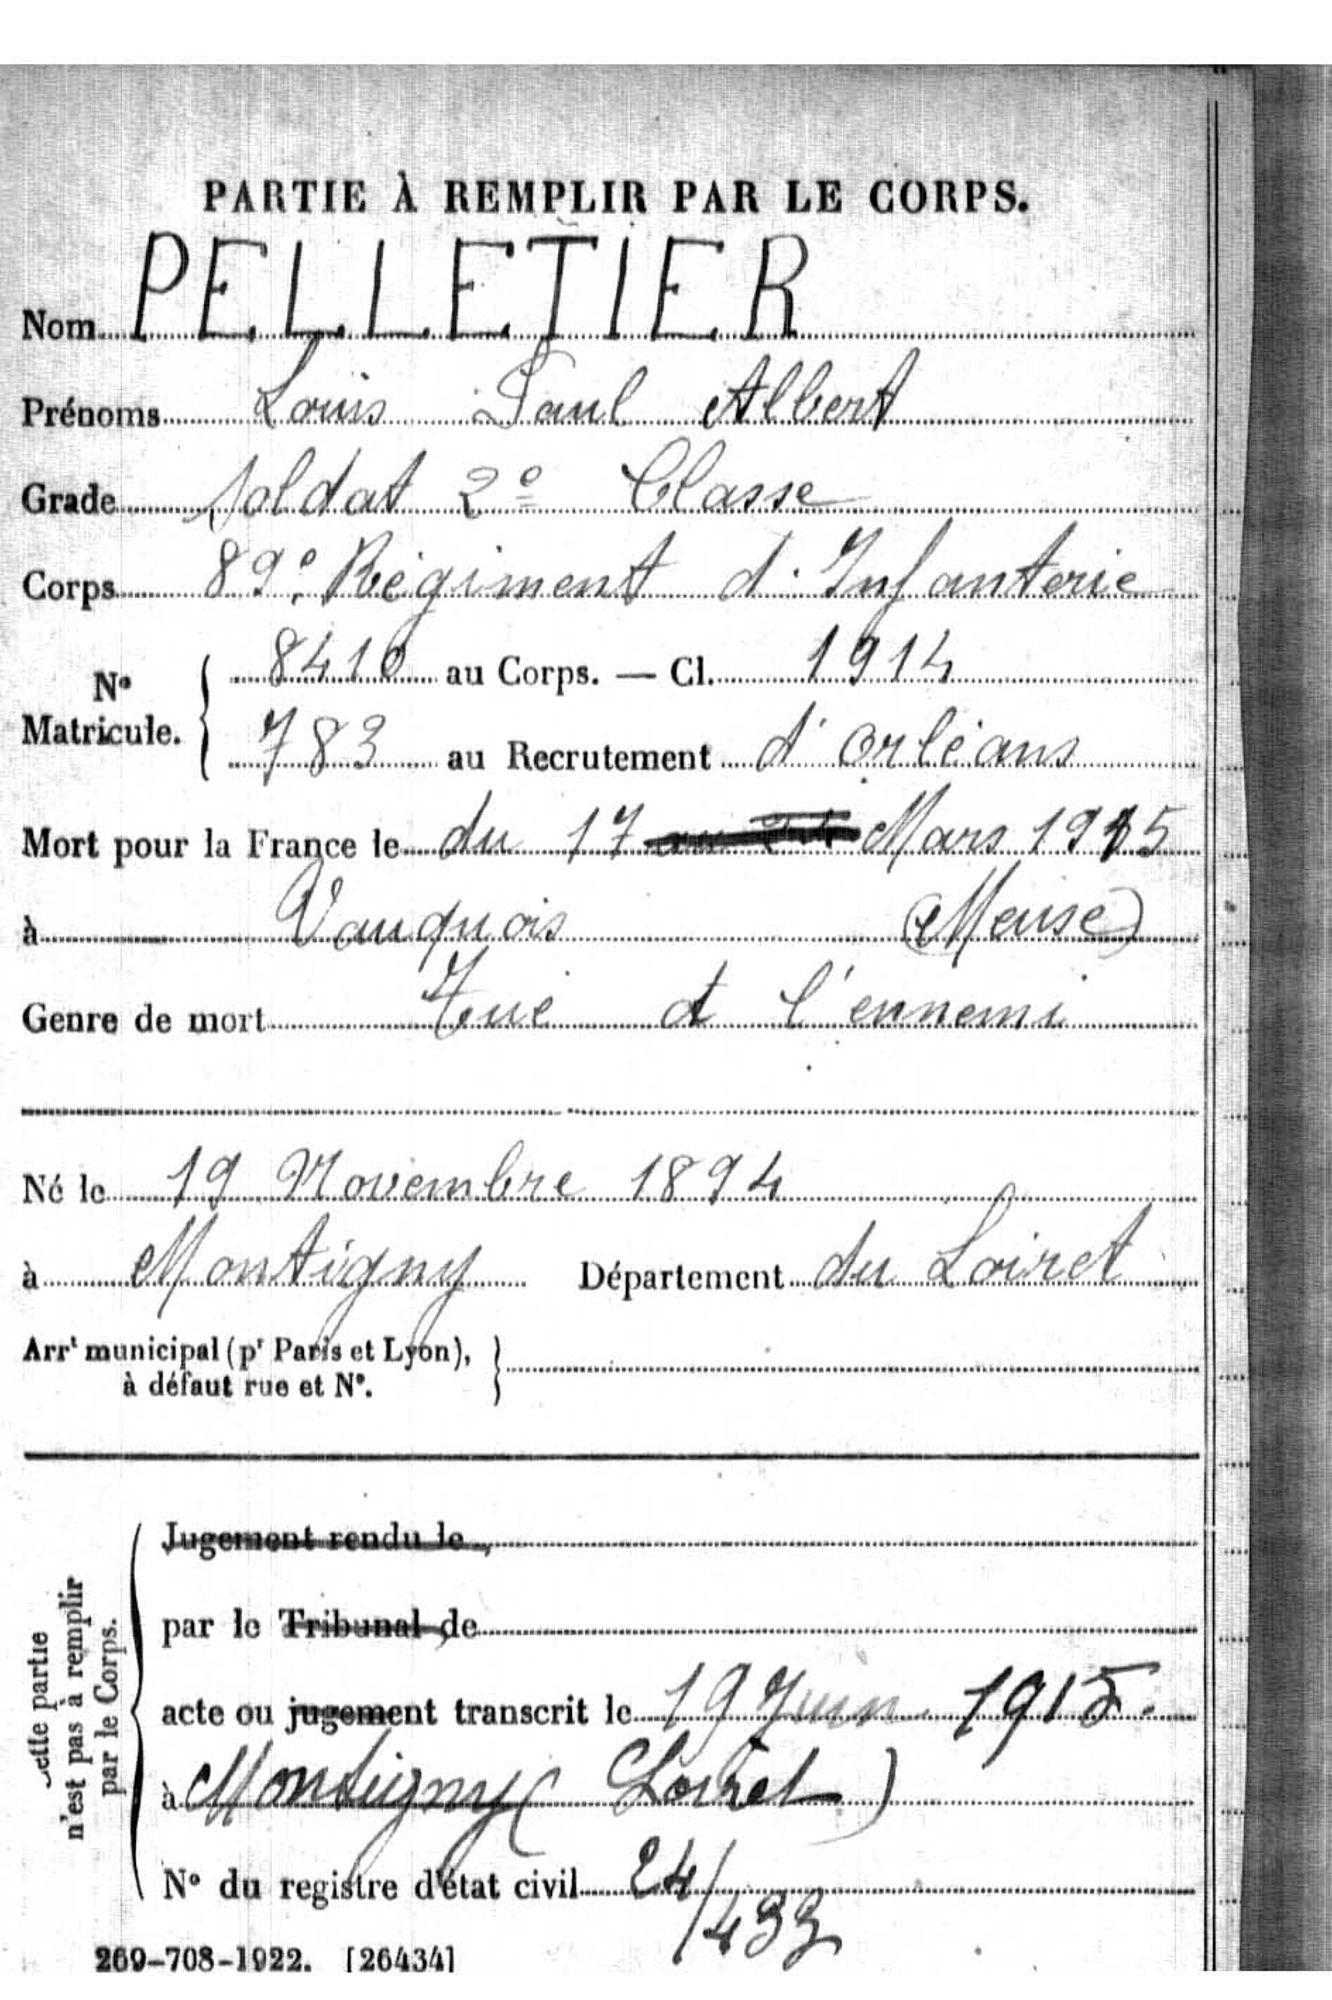 PARTIE À REMPLIR PAR LE CORPS.
Nom PELLETIER
Prénoms Louis Paul Albert
Grade Soldat 2e Classe
Corps 89e Régiment d'Infanterie
N° Matricule. 8410 au Corps. — Cl. 1914
783 au Recrutement d'Orléans
Mort pour la France le du 17 Mars 1915
à Vauquois (Meuse)
Genre de mort Tué à l'ennemi
Né le 19 Novembre 1894
à Montigny Département du Loiret
Arrt municipal (pr Paris et Lyon),
à défaut rue et N°.
cette partie
n'est pas à remplir
par le Corps.
Jugement rendu le
par le Tribunal de
acte ou jugement transcrit le 19 Juin 1915.
à Montigny (Loiret)
N° du registre d'état civil 24/433
269-708-1922. [26434]